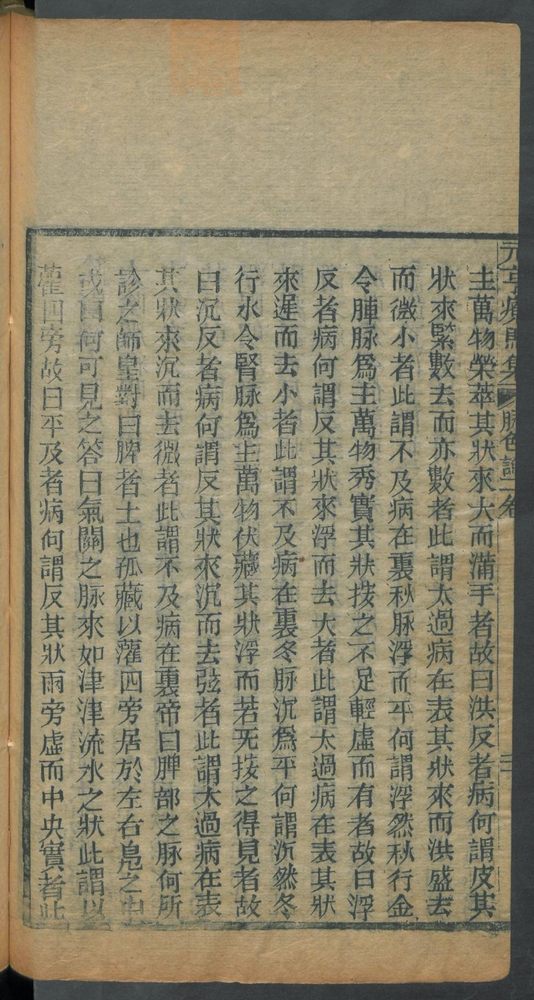 元亨療馬集 脉色論 一卷
主萬物榮萃其狀來大而滿手者故曰洪反者病何謂皮其
狀來緊數去而亦數者此謂太過病在表其狀來而洪盛去
而微小者此謂不及病在裏秋脉浮而平何謂浮然秋行金
令肺脉爲主萬物秀實其狀按之不足輕虛而有者故曰浮
反者病何謂反其狀來浮而去大者此謂太過病在表其狀
來遲而去小者此謂不及病在裏冬脉沉爲平何謂沉然冬
行水令腎脉爲主萬物伏藏其狀浮而若无按之得見者故
曰沉反者病何謂反其狀來沉而去弦者此謂太過病在表
其狀來沉而去微者此謂不及病在裏帝曰脾部之脉何所
診之師皇對曰脾者土也孤藏以灌四旁居於左右鳧之中
或曰何可見之答曰氣關之脉來如津津流水之狀此謂以
灌四旁故曰平及者病何謂反其狀兩旁虛而中央實者此